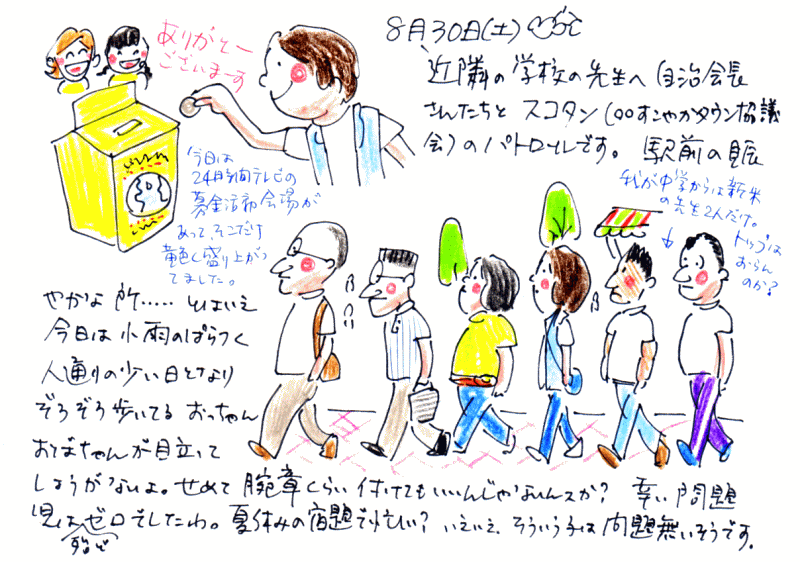 8月30日(土)
近隣の学校の先生へ 自治会長
さんたちと スコタン (○○すこやかタウン協議
会)のパトロールです。 駅前の賑
やかな所‥‥‥ とはいえ
今日は小雨のぱらつく
人通りの少い日となり
ぞろぞろ歩いてる おっちゃん
おばちゃんが目立って
しょうがないよ。せめて 腕章くらい 付けてもいいんじゃないんスか? 幸い 問題
児はゼロでしたわ。夏休みの宿題で忙しい? いえいえ そういう子は 問題無いそうです。
殆ど
ありがとー
ございまーす
今日は
24時間テレビの
募金活動会場が
あって、そこだけ
黄色く盛り上がっ
てました。
我が中学からは新米
の先生2人だけ。
トップは
おらん
のか?